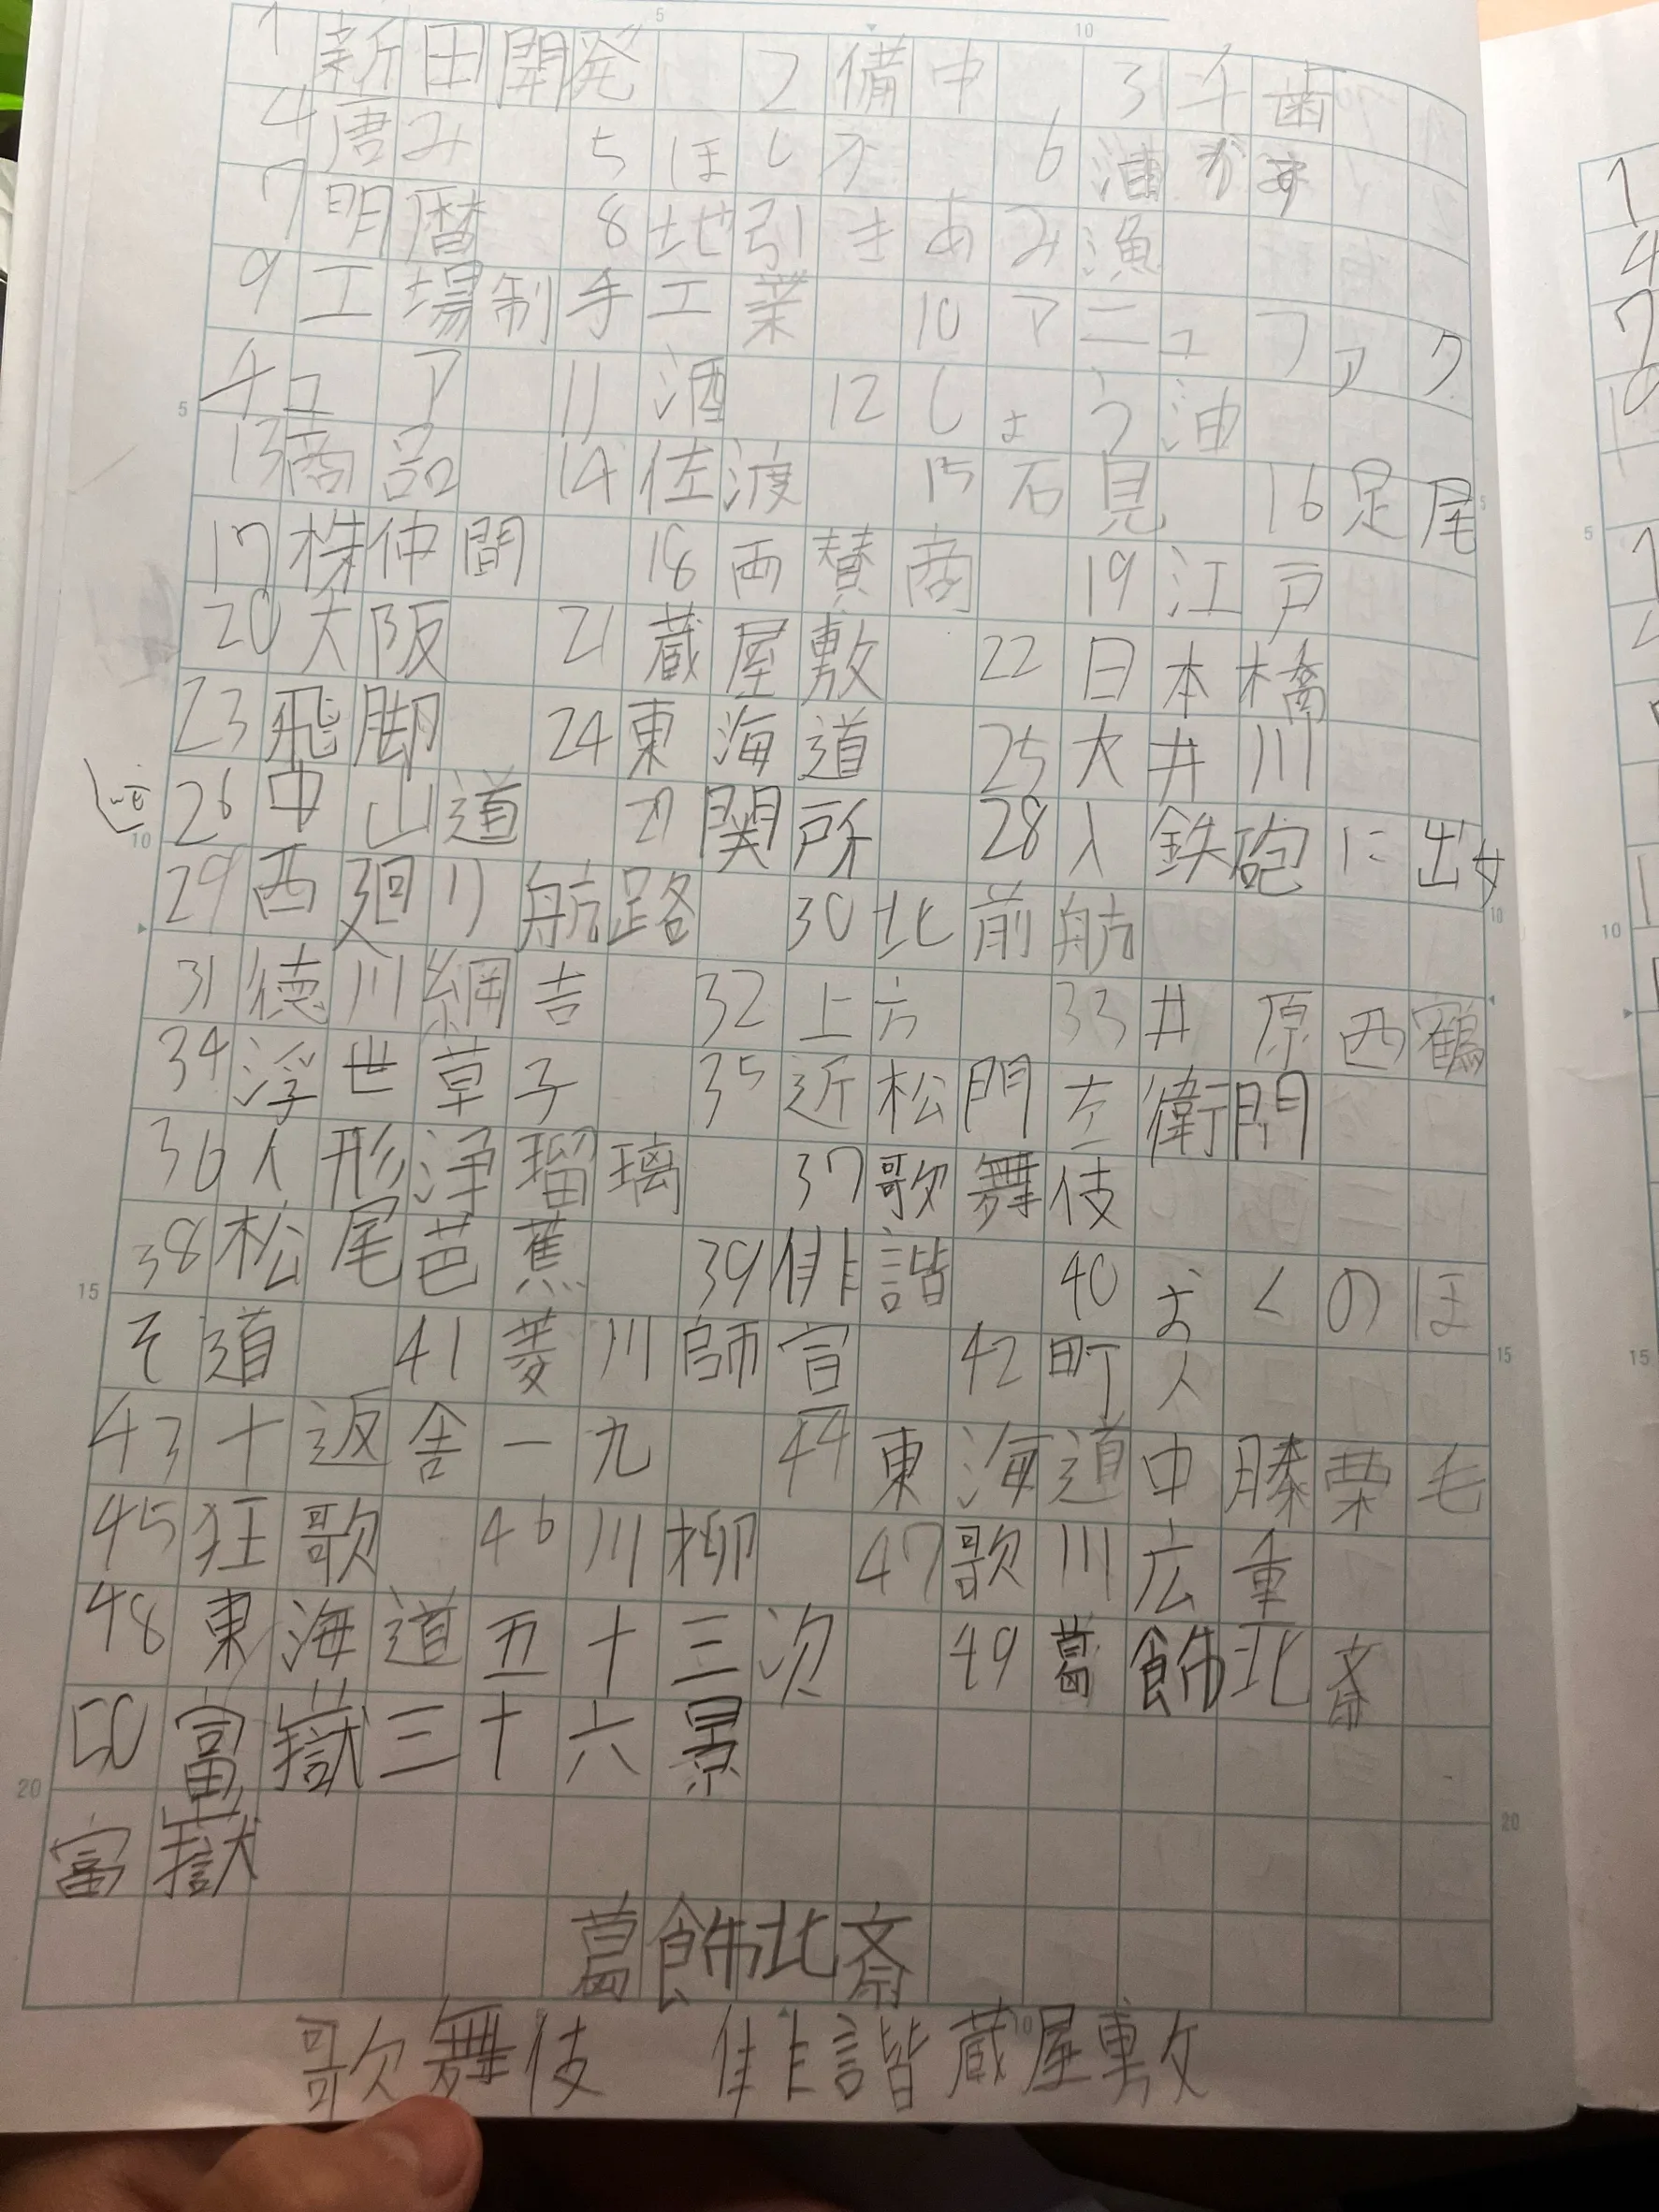 1 新田開発 2 備中 3 千歯
4 唐み 5 ほしか 6 油かす
7 明暦 8 地引きあみ漁
9 工場制手工業 10 マニュファク
チュア 11 酒 12 しょう油
13 商品 14 佐渡 15 石見 16 足尾
17 株仲間 18 両替商 19 江戸
20 大阪 21 蔵屋敷 22 日本橋
23 飛脚 24 東海道 25 大井川
26 中山道 27 関所 28 入鉄砲に出女
29 西廻り航路 30 北前船
31 徳川綱吉 32 上方 33 井原西鶴
34 浮世草子 35 近松門左衛門
36 人形浄瑠璃 37 歌舞伎
38 松尾芭蕉 39 俳諧 40 おくのほ
そ道 41 菱川師宣 42 町人
43 十返舎一九 44 東海道中膝栗毛
45 狂歌 46 川柳 47 歌川広重
48 東海道五十三次 49 葛飾北斎
50 富嶽三十六景
富嶽
葛飾北斎
歌舞伎 俳諧 蔵屋敷